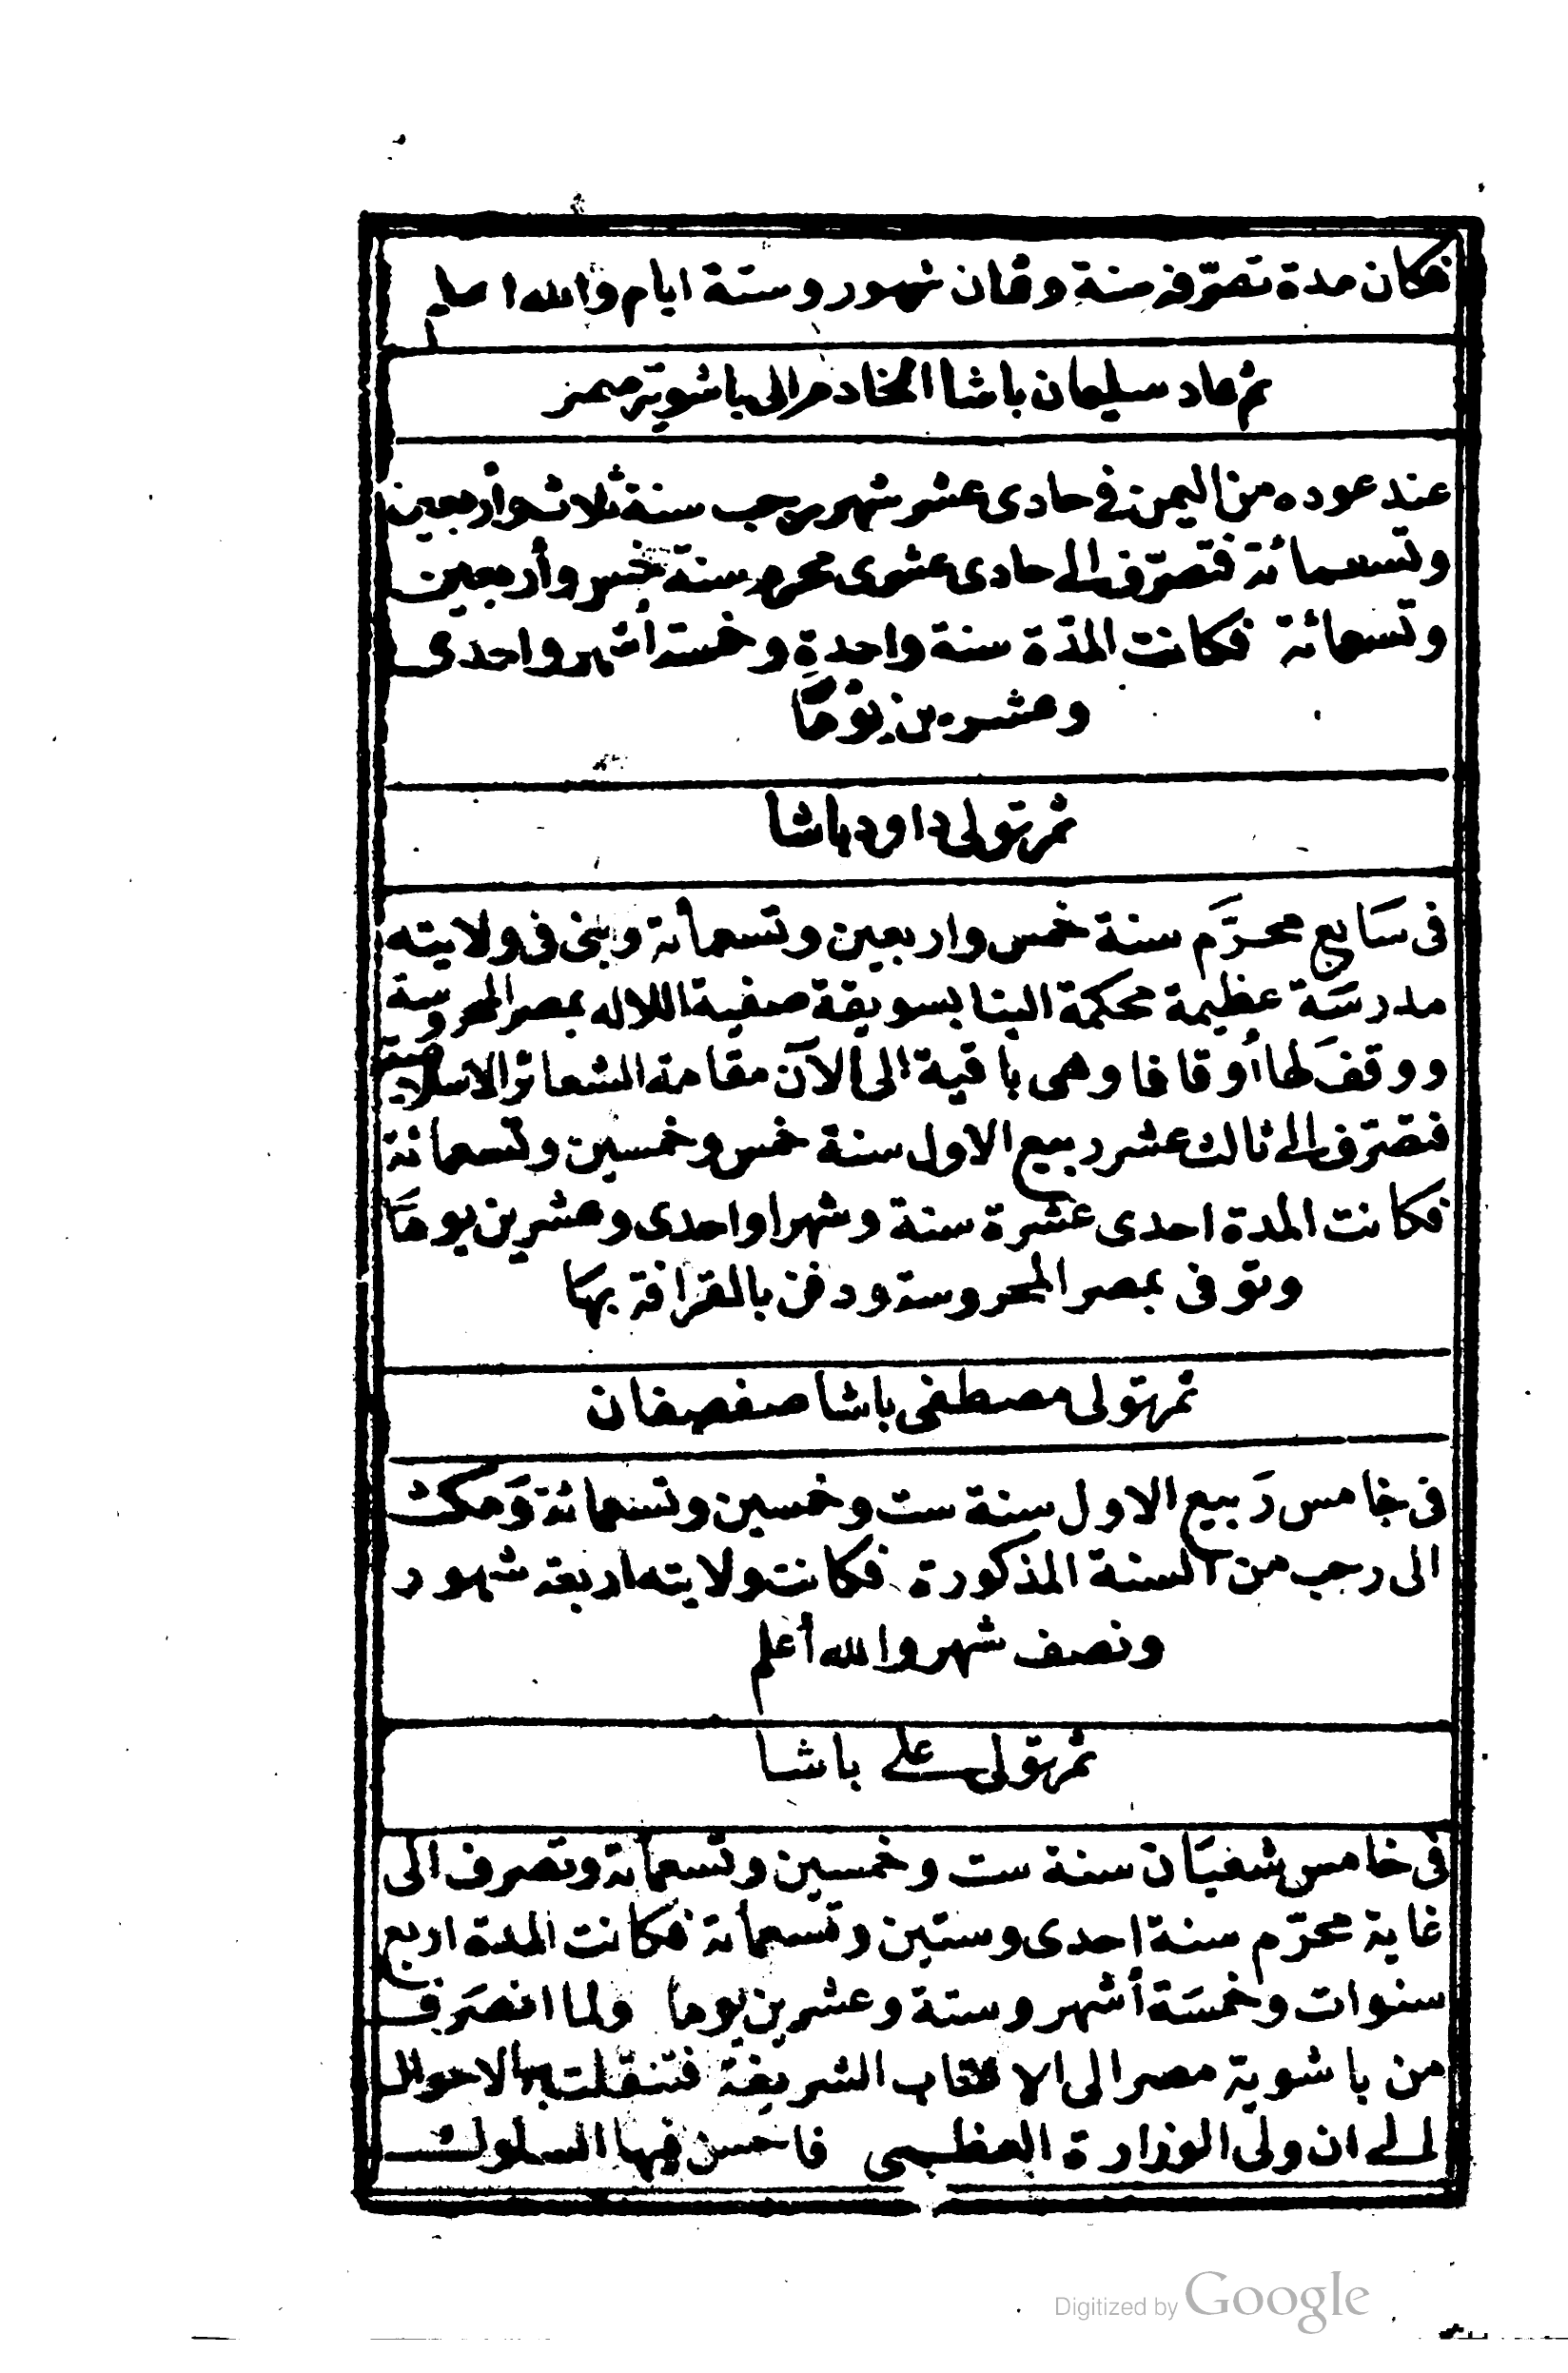 فكان مدة تصرّفه سنة وثمان شهور وستة ايام والله اعلم
ثم عاد سليمان باشا الخادم الى باشوية مصر
عند عوده من اليمن في حادى عشر شهر رجب سنة ثلاث وأربعين
وتسعمائة فتصرّف الى حادى عشرى محرم سنة خمس وأربعين
وتسعمائة فكانت المدّة سنة واحدة وخمسة أشهر واحدى
وعشرين يومًا
ثم تولى داود باشا
فى سَابع محرَّم سنة خمس واربعين وتسعمأئة وبنى فى ولايته
مدرسَة عظيمة محكمة البنا بسويقة صفية اللاله بمصر المحروسة
ووقفَ لها أوقافا وهى باقية الى الآن مقامة الشعائر الاسلامية
فتصّرف الى ثالث عشر ربيع الاول سنة خمس وخمسين وتسعمائة
فكانت المدة احدى عشرة سنة وشهرا واحدى وعشرين يومًا
وتوفى بمصر المحروسة ودفن بالقرافة بهَا
ثم تولى مصطفى باشا صفصفان
فى خامس رَبيع الاول سنة ست وخمسين وتسعمائة وَمكث
الى رجب من السنة المذكورة فكانت ولايته اربعة شهور
ونصف شهر والله أعلم
ثم تولى على باشا
فى خامس شعبَان سنة ست وخمسين وتسعمأئة وتصرف الى
غاية محرّم سنة احدى وستين وتسعمأئة فكانت المدة اربع
سنوات وخمسَة أشهر وستة وعشرين يوما ولما انصَرف
من باشوية مصر الى الاعتاب الشريفة فتنقلت به الاحوال
الى ان ولى الوزارة العظمى فاحسن فيها السلوك
Digitized by Google